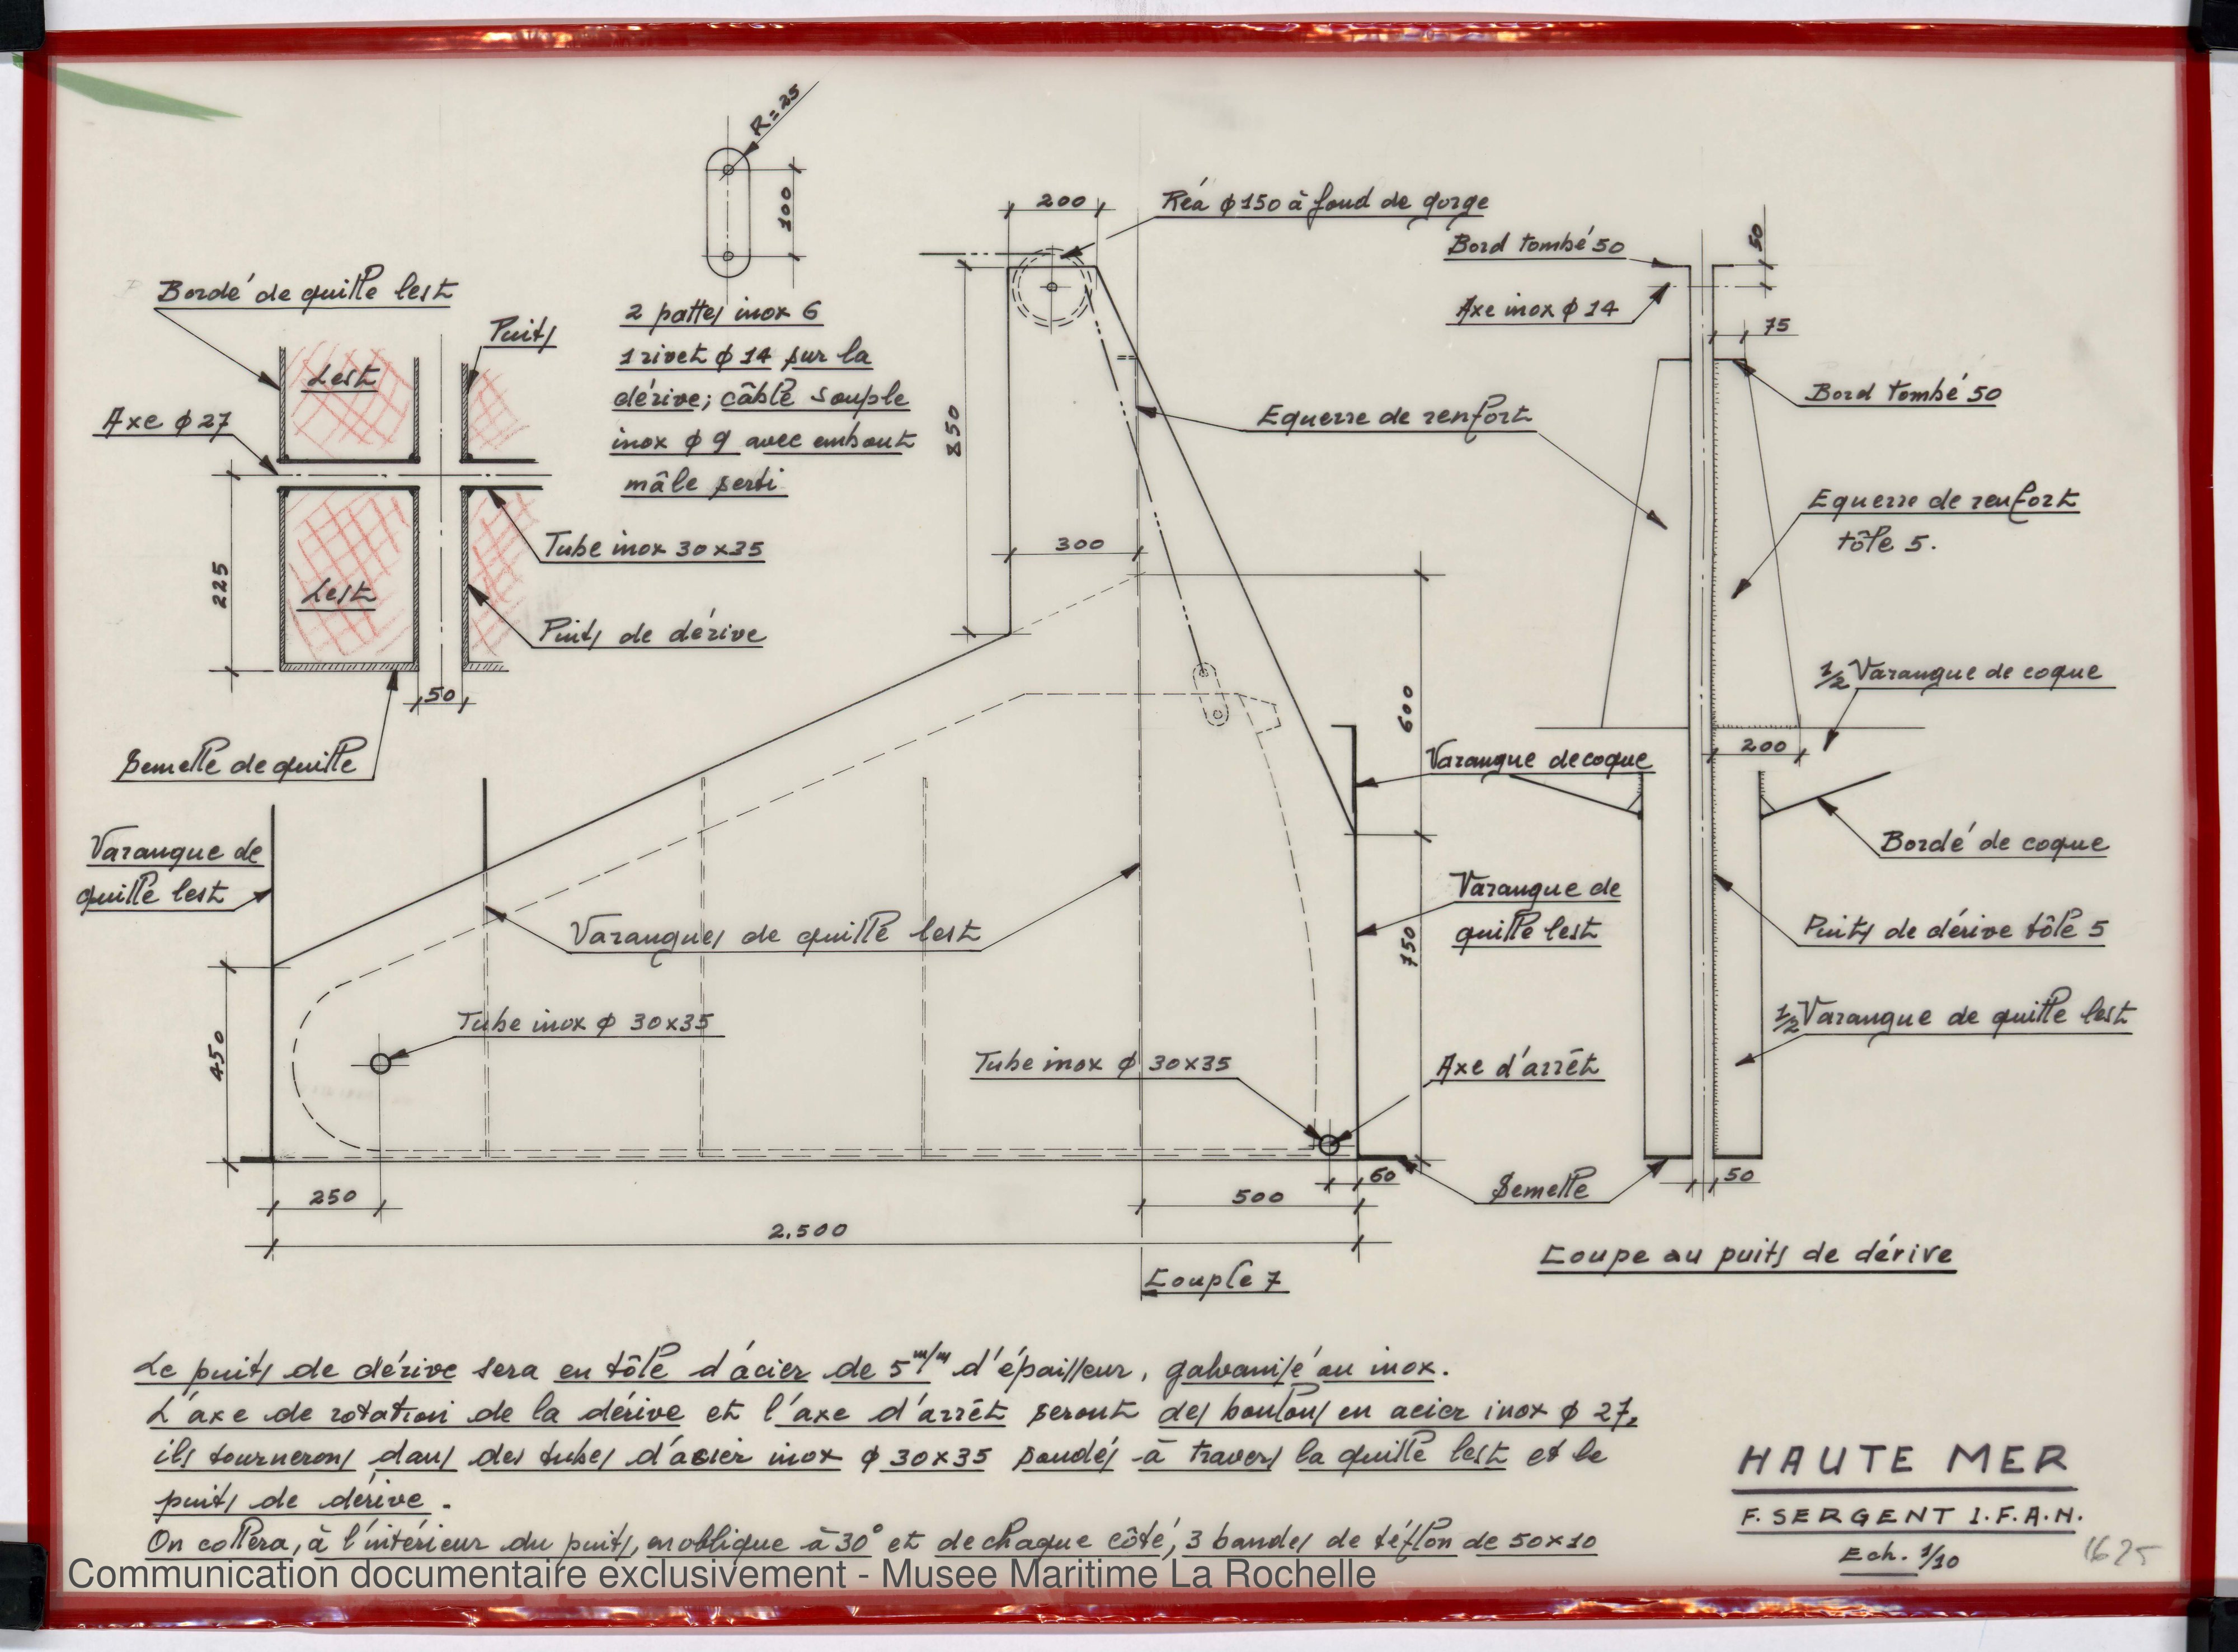 R=25
100
200
Réa ϕ150 à fond de gorge
Bord tombé 50
50
Axe inox ϕ 14
75
Bordé de quille lest
Puits
Lest
Axe ϕ 27
2 pattes inox 6
1 rivet ϕ 14 sur la
dérive; câble souple
inox ϕ 9 avec embout
mâle serti
850
Equerre de renfort
Bord tombé 50
Equerre de renfort
tôle 5.
Tube inox 30x35
300
225
Lest
Puits de dérive
50
Semelle de quille
600
1/2 Varangue de coque
200
Varangue de coque
Varangue de
quille lest
Bordé de coque
Varangue de
quille lest
Varangues de quille lest
750
Puits de dérive tôle 5
450
Tube inox ϕ 30x35
Tube inox ϕ 30x35
Axe d'arrêt
1/2 Varangue de quille lest
250
60
500
Semelle
50
2.500
Couple 7
Coupe au puits de dérive
Le puits de dérive sera en tôle d'acier de 5 m/m d'épaisseur, galvanisé ou inox.
L'axe de rotation de la dérive et l'axe d'arrêt seront des boulons en acier inox ϕ 27,
ils tournerons dans des tubes d'acier inox ϕ 30x35 soudés à travers la quille lest et le
puits de dérive.
On collera, à l'intérieur du puits, en oblique à 30° et de chaque côté, 3 bandes de téflon de 50x10
HAUTE MER
F. SERGENT I.F.A.N.
Ech. 1/10
1625
Communication documentaire exclusivement - Musee Maritime La Rochelle